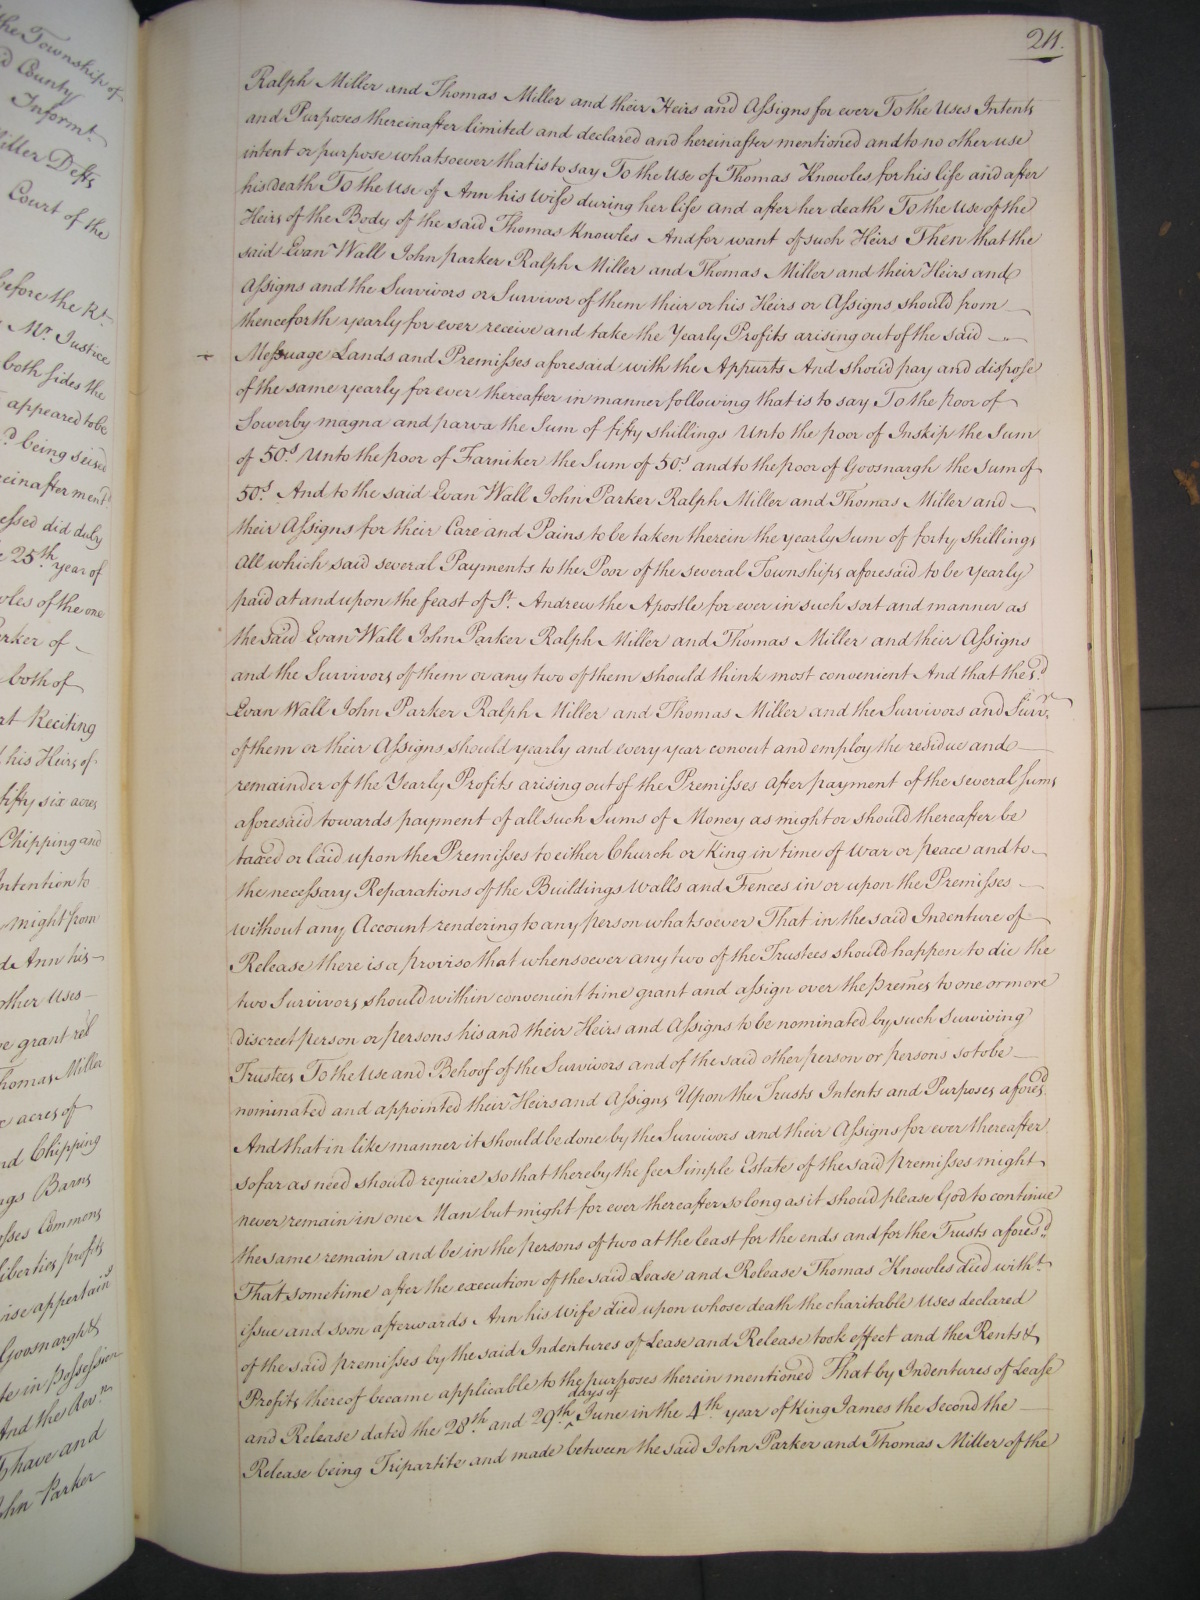 the Township of
d County
Inform.t
iller Defts
Court of the
before the R.t
Mr. Justice
both sides the
appeared to be
.d being seised
einafter ment.d
essed did duly
25th year of
wles of the one
arker of
both of
rt Reciting
his Heirs of
fifty six acres
Chipping and
Intention to
might from
d Ann his
other Uses
e grant rel
homas Miller
acres of
nd Chipping
ngs Barns
sses Commons
iberties profits
ise appertain
Goosnargh &
te in Possession
And the Rev.n
have and
ohn Parker
211.
Ralph Miller and Thomas Miller and their Heirs and Assigns for ever To the Uses Intents
and Purposes thereinafter limited and declared and hereinafter mentioned and to no other use
intent or purpose whatsoever that is to say To the Use of Thomas Knowles for his life and after
his Death To the Use of Ann his Wife during her life and after her death To the Use of the
Heirs of the Body of the said Thomas Knowles And for want of such Heirs Then that the
said Evan Wall John Parker Ralph Miller and Thomas Miller and their Heirs and
Assigns and the Survivors or Survivor of them their or his Heirs or Assigns should from
thenceforth yearly for ever receive and take the Yearly Profits arising out of the said
Messuage Lands and Premisses aforesaid with the Appurts And should pay and dispose
of the same yearly for ever thereafter in manner following that is to say To the Poor of
Sowerby magna and parva the Sum of fifty shillings Unto the poor of Inskip the Sum
of 50s. Unto the poor of Farniker the Sum of 50s. and to the poor of Goosnargh the Sum of
50s. And to the said Evan Wall John Parker Ralph Miller and Thomas Miller and
their Assigns for their Care and Pains to be taken therein the yearly Sum of forty shillings
All which said several Payments to the Poor of the several Townships aforesaid to be Yearly
paid at and upon the feast of St. Andrew the Apostle for ever in such sort and manner as
the said Evan Wall John Parker Ralph Miller and Thomas Miller and their Assigns
and the Survivors of them or any two of them should think most convenient And that the s.d
Evan Wall John Parker Ralph Miller and Thomas Miller and the Survivors and Surv.r
of them or their Assigns should yearly and every year convert and employ the residue and
remainder of the Yearly Profits arising out of the Premisses after payment of the several sums
aforesaid towards payment of all such Sums of Money as might or should thereafter be
taxed or laid upon the Premisses to either Church or King in time of War or peace and to
the necessary Reparations of the Buildings Walls and Fences in or upon the Premisses
without any Account rendering to any person whatsoever That in the said Indenture of
Release there is a proviso that whensoever any two of the Trustees should happen to die the
two Survivors should within convenient time grant and assign over the premes to one or more
Discreet person or persons his and their Heirs and Assigns to be nominated by such Surviving
Trustees To the Use and Behoof of the Survivors and of the said other person or persons so to be
nominated and appointed their Heirs and Assigns Upon the Trusts Intents and Purposes afores.d
And that in like manner it should be done by the Survivors and their Assigns for ever thereafter
so far as need should require so that thereby the fee Simple Estate of the said premisses might
never remain in one Man but might for ever thereafter so long as it should please God to continue
the same remain and be in the persons of two at the least for the ends and for the Trusts afores.d
That sometime after the execution of the said Lease and Release Thomas Knowles died with.t
issue and soon afterwards Ann his Wife died upon whose death the charitable Uses declared
of the said premisses by the said Indentures of Lease and Release took effect and the Rents &
Profits thereof became applicable to the purposes therein mentioned That by Indentures of Lease
and Release dated the 28th and 29th days of June in the 4th year of King James the Second the
Release being Tripartite and made between the said John Parker and Thomas Miller of the